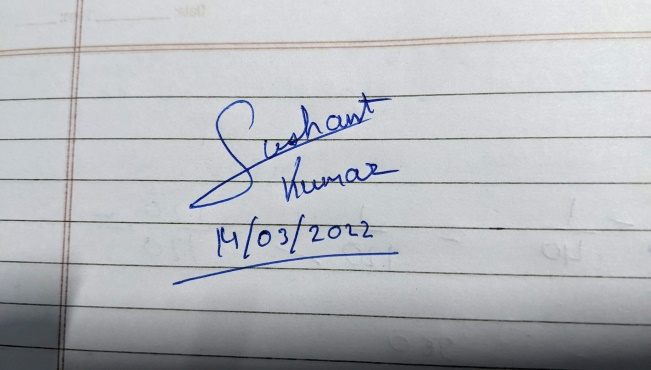 Sushant
Kumar
14/03/2022